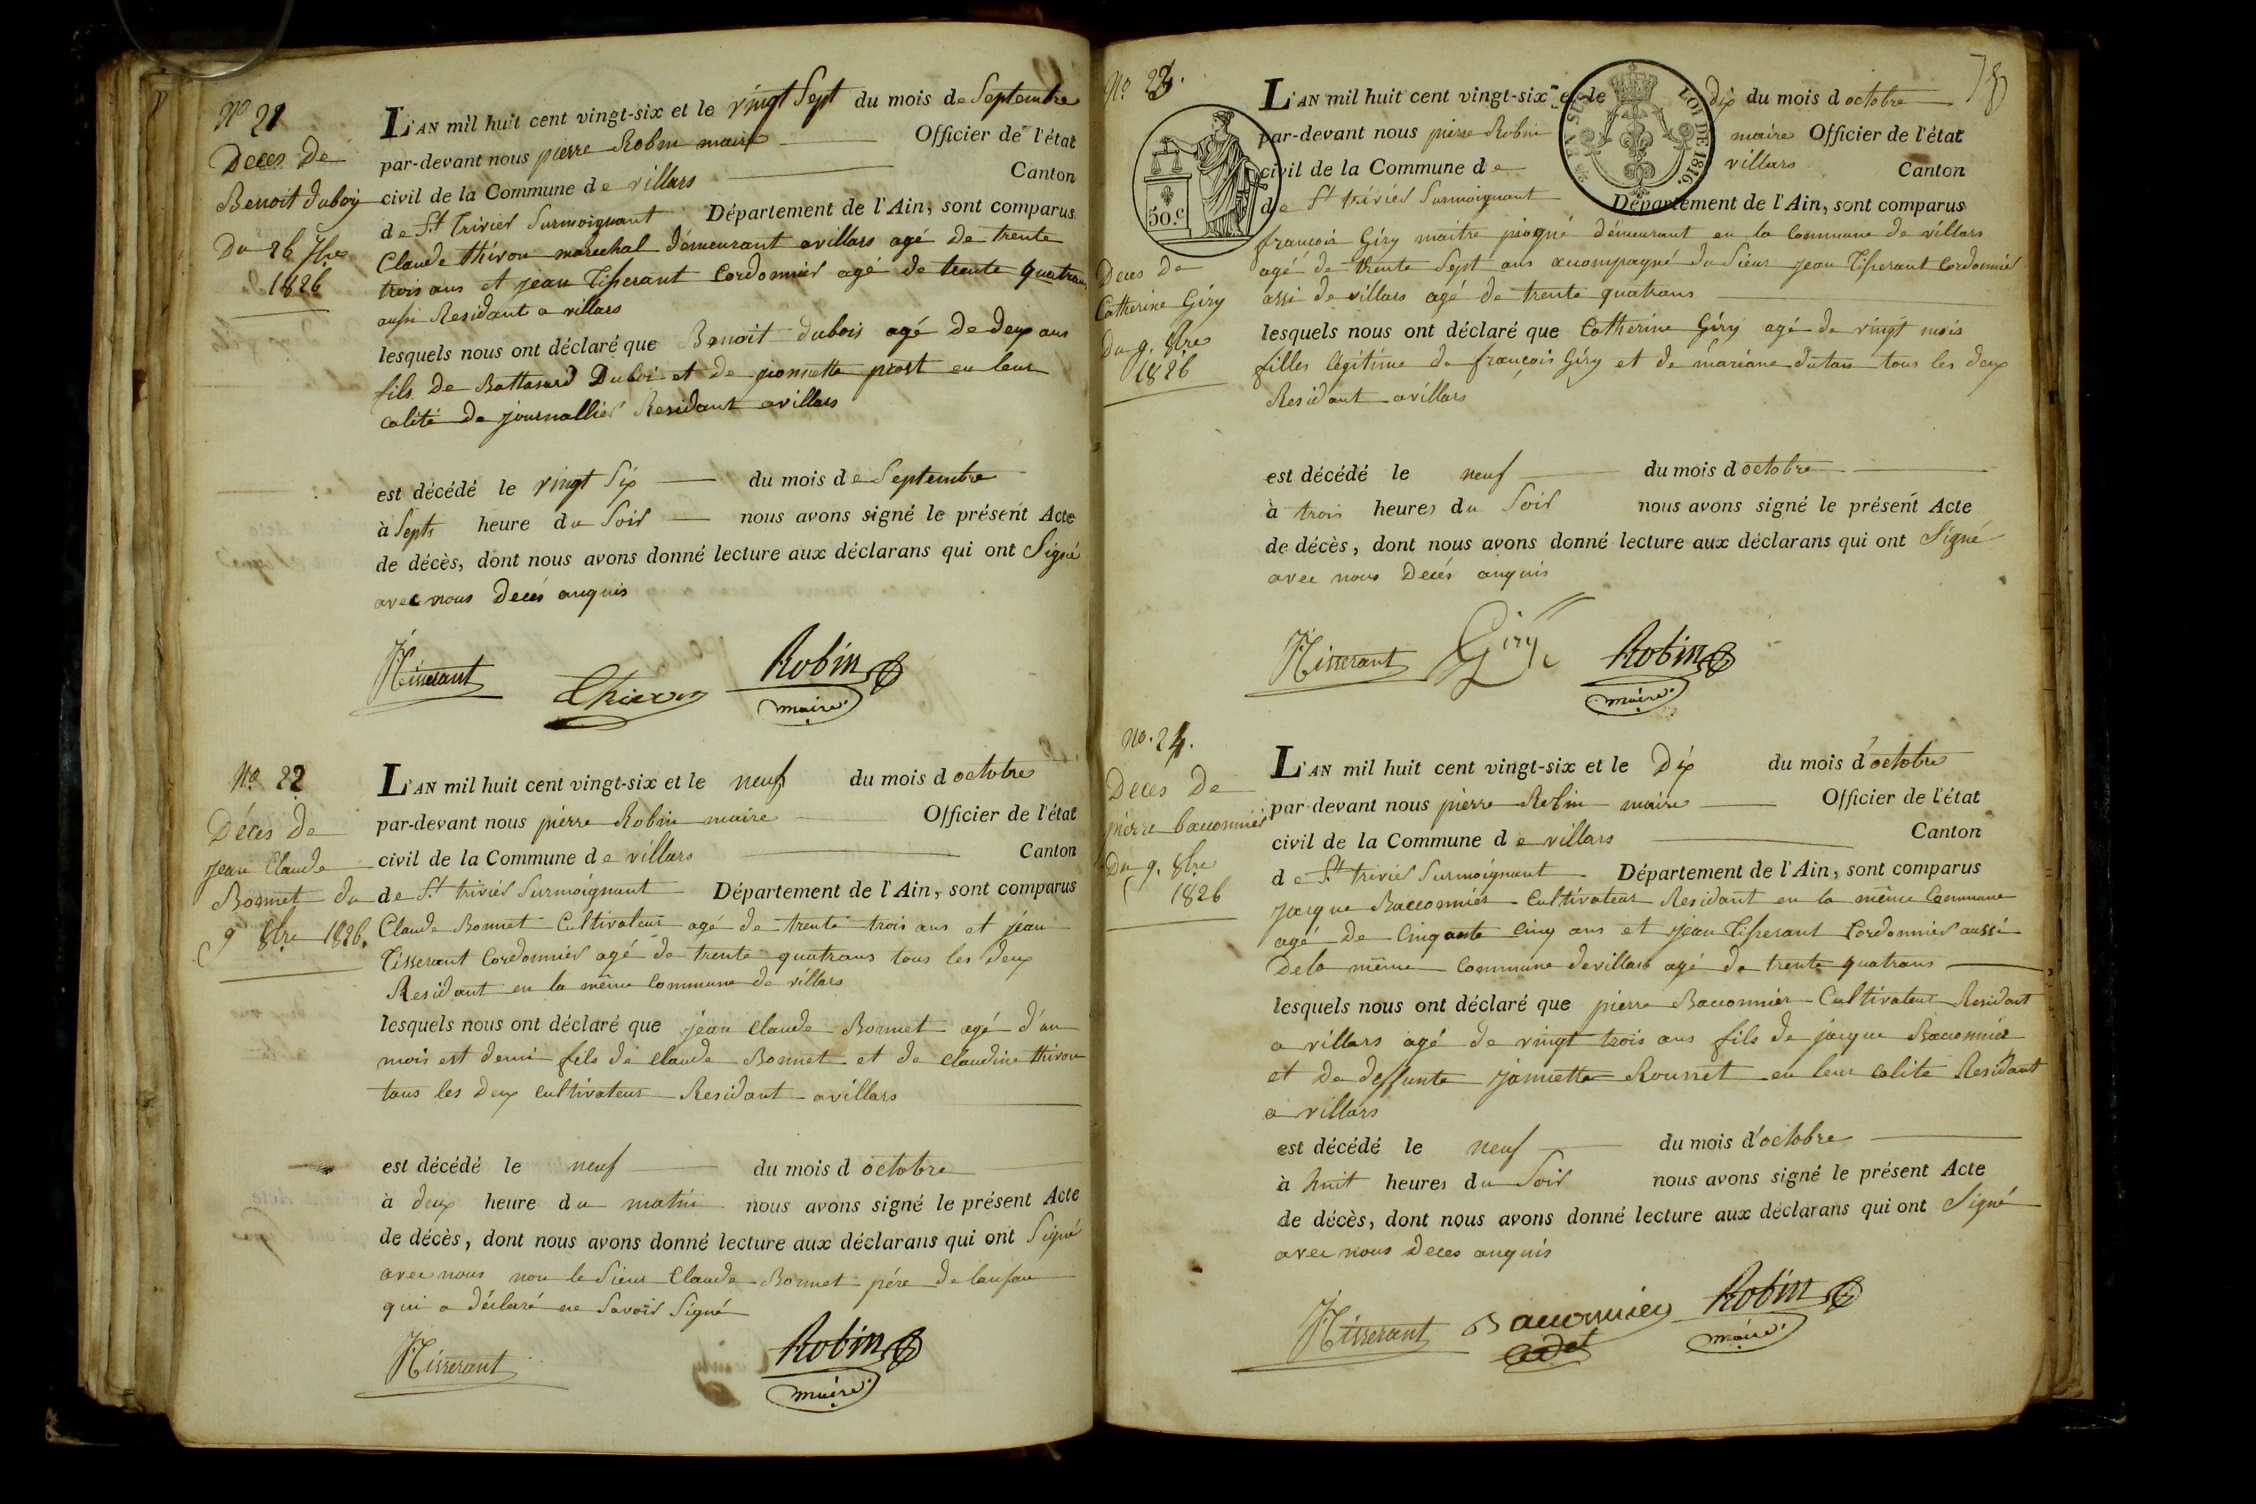 N.o 21
Deces de
Benoit duboiy
Du 26 7bre
1826
L'AN mil huit cent vingt-six et le vingt Sept du mois de Septembre
par-devant nous pierre Robin maire Officier de l'état
civil de la Commune de villars Canton
de St trivier Surmoignant Département de l'Ain, sont comparus
Claude thivon marechal démeurant avillars agé de trente
trois ans et jean Tisserant Cordonnier agé de trente quatrans
aussi Residant a villars
lesquels nous ont déclaré que Benoit dubois agé de deux ans
fils de Battasard Duboi et de pionsette prost en leur
calité de journallier Residant avillars
est décédé le vingt Six du mois de Septembre
à Septs heure du Soir nous avons signé le présent Acte
de décès, dont nous avons donné lecture aux déclarans qui ont Signé
avec nous Decés anquis
Tisserant Thivon Robin
maire
No. 22
Déces de
jean Claude
Bonnet du
9 8bre 1826.
L'AN mil huit cent vingt-six et le neuf du mois d octobre
par-devant nous pierre Robin maire Officier de l'état
civil de la Commune de villars Canton
de St. trivier Surmoignant Département de l'Ain, sont comparus
Claude Bonnet Cultivateur agé de trente trois ans et jean
Tisserant Cordonnier agé de trente quatrans tous les deux
Residant en la même Commune de villars
lesquels nous ont déclaré que jean Claude Bonnet agé d'un
mois est demi fils de Claude Bonnet et de Claudine thivon
tous les deux cultivateur Residant avillars
est décédé le neuf du mois d octobre
à deux heure du matin nous avons signé le présent Acte
de décès, dont nous avons donné lecture aux déclarans qui ont Signé
avec nous non le Sieur Claude Bonnet pére de lanfan
qui a déclaré ne Savoir Signé
Tisserant Robin
maire
78
No. 23.
50.c
EN SUS
LOI DE 1816.
Deces de
Catherine Giry
Du 9. 8bre
1826
L'AN mil huit cent vingt-six et le dix du mois d octobre
par-devant nous pierre Robin maire Officier de l'état
civil de la Commune de villars Canton
de St trivier Surmoignant Département de l'Ain, sont comparus
françois Giry maitre piogné démeurant en la Commune de villars
agé de trente Sept ans accompagné du Sieur jean Tisserant Cordonnier
assi de villars agé de trente quatrans
lesquels nous ont déclaré que Catherine Giry agé de vingt mois
filles legitime de françois Giry et de mariane dutan tous les deux
Residant avillars
est décédé le neuf du mois d octobre
à trois heures du Soir nous avons signé le présent Acte
de décès, dont nous avons donné lecture aux déclarans qui ont Signé
avec nous Decés anquis
Tisserant Giry Robin
maire
No. 24.
Deces De
pierre baccomnier
Du 9. 8bre
1826
L'AN mil huit cent vingt-six et le Dix du mois d'octobre
par-devant nous pierre Robin maire Officier de l'état
civil de la Commune de villars Canton
de St. trivier Surmoignant Département de l'Ain, sont comparus
jacque Bacconnier Cultivateur Residant en la même Commune
agé de Cinqante Cinq ans et jean Tisserant Cordonnier aussi
Dela même Commune devillars agé de trente quatrans
lesquels nous ont déclaré que pierre Bacconnier Cultivateur Residant
a villars agé de vingt trois ans fils de jacque Bacconnier
et De deffunte jamiette Rousset en leur calité Residant
a villars
est décédé le neuf du mois d'octobre
à huit heures du Soir nous avons signé le présent Acte
de décès, dont nous avons donné lecture aux déclarans qui ont Signé
avec nous Deces anquis
Tisserant Bacconnier Robin
cadet maire